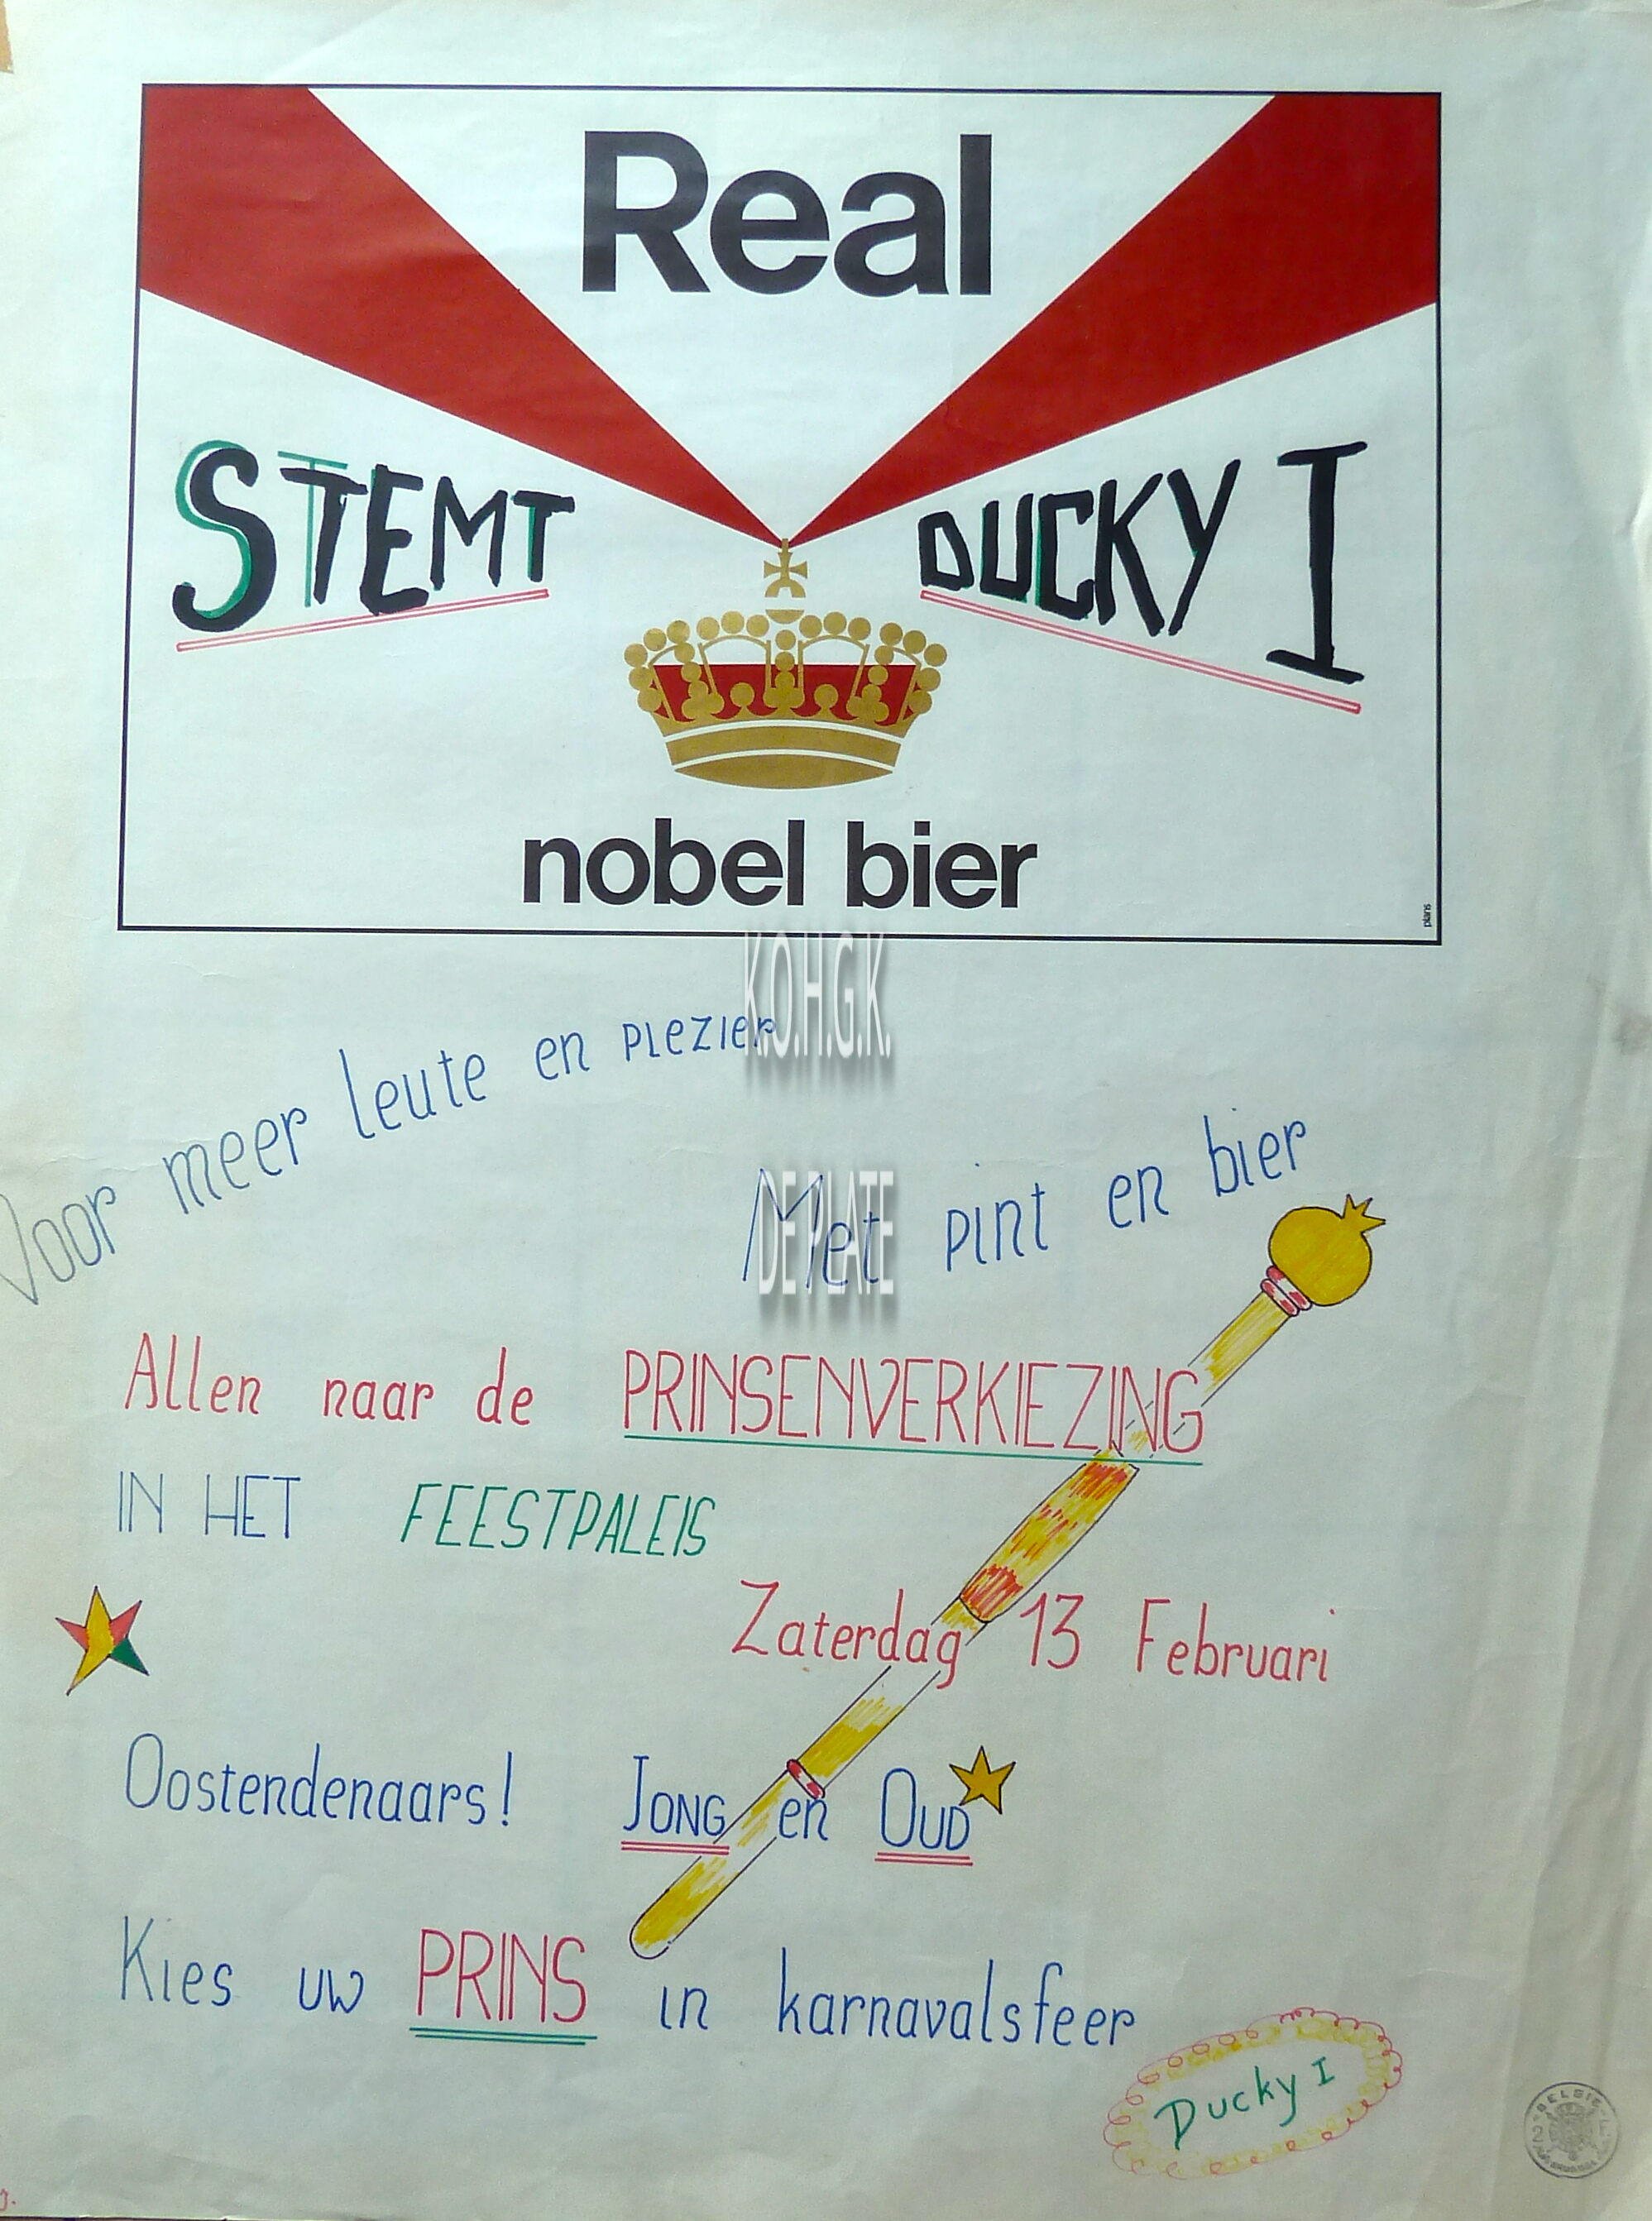 Real
STEMT DUCKY I
nobel bier
plans
K.O.H.G.K.
Voor meer leute en plezier
DE PLATE
Met pint en bier
Allen naar de PRINSENVERKIEZING
IN HET FEESTPALEIS
Zaterdag 13 Februari
Oostendenaars! Jong en Oud
Kies uw PRINS in karnavalsfeer
Ducky I
BELGIE
2